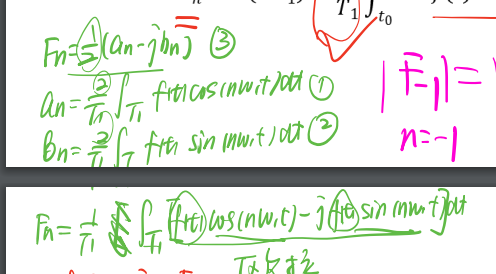 T₁ ∫t₀
Fn=½(an-jbn) ③
an=2/T₁ ∫T₁ f(t)cos(nω₁t)dt ①
|F₋₁|=
bn=2/T₁ ∫T f(t) sin(nω₁t)dt ②
n=-1
Fn=1/T₁ ∫T₁ [f(t)cos(nω₁t)-jf(t)sin(nω₁t)]dt